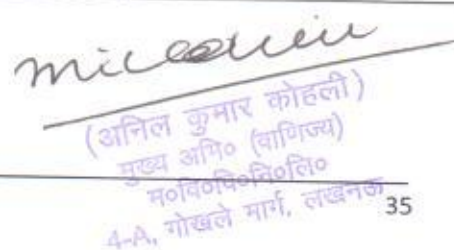 (अनिल कुमार कोहली)
मुख्य अभि० (वाणिज्य)
म०वि०वि०नि०लि०
4-A, गोखले मार्ग, लखनऊ
35